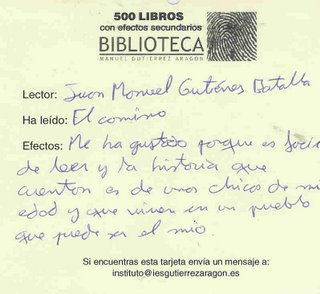 500 LIBROS
con efectos secundarios
BIBLIOTECA
MANUEL GUTIÉRREZ ARAGÓN
Lector: Juan Manuel Gutiérrez Batalla
Ha leído: El camino
Efectos: Me ha gustado porque es fácil
de leer y la historia que
cuentan es de unos chicos de mi
edad y que viven en un pueblo
que puede ser el mio.
Si encuentras esta tarjeta envía un mensaje a:
instituto@iesgutierrezaragon.es